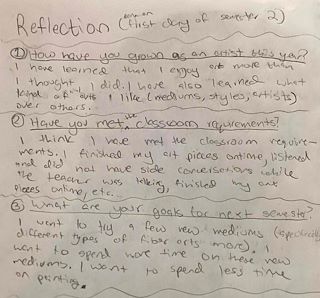 Reflection (first day of semester 2)
① How have you grown as an artist this year?
I have learned that I enjoy art more than
I thought I did. I have also learned what
kind of arts I like (mediums, styles, artists)
over others.
② Have you met the classroom requirements?
I think I have met the classroom require-
ments. I finished my art pieces ontime, listened
and did not have side conversations while
the teacher was talking, finished my art
pieces ontime, etc.
③ What are your goals for next semester?
I want to try a few new mediums (especially
different types of fiber arts more). I
want to spend more time on these new
mediums. I want to spend less time
on printing.